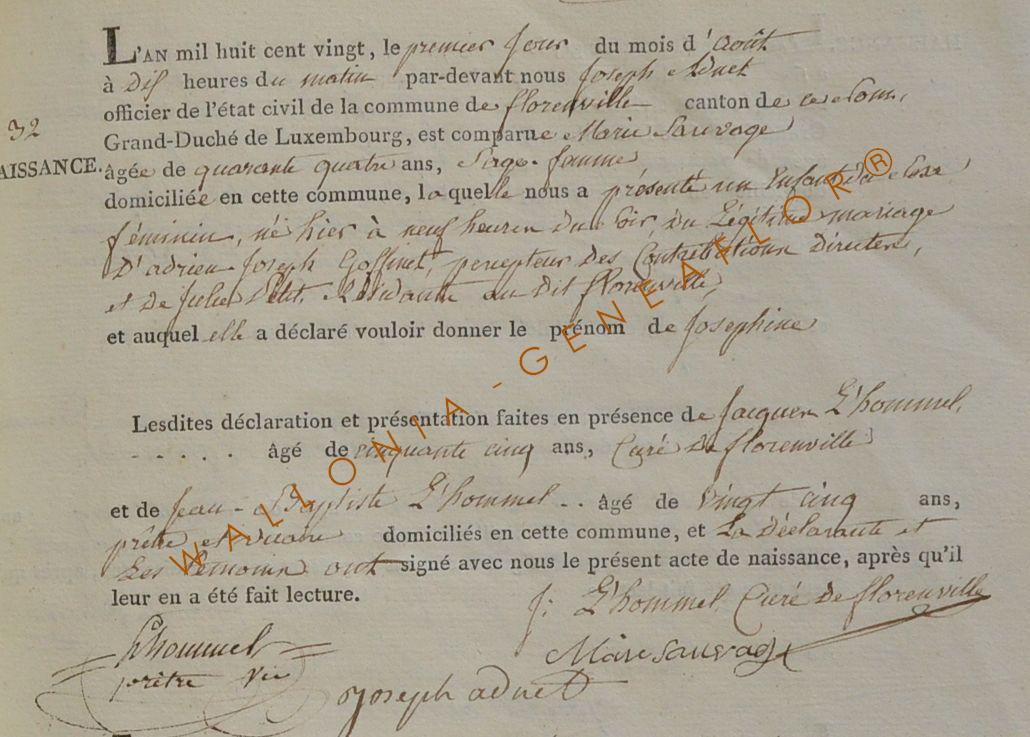 L'AN mil huit cent vingt, le premier jour du mois d'août
à dix heures du matin par-devant nous Joseph Adnet
officier de l'état civil de la commune de florenville canton de ce nom,
32
Grand-Duché de Luxembourg, est comparue Marie Sauvage
AISSANCE.
âgée de quarante quatre ans, Sage-famme
domiciliée en cette commune, laquelle nous a présenté un Enfant du Sexe
féminin, né hier à neuf heures du soir, du Légitime mariage
D'adrien Joseph Goffinet, percepteur des Contributions Directes,
et de Julie Petit, Résidante au dit florenville,
et auquel elle a déclaré vouloir donner le prénom de Josephine
Lesdites déclaration et présentation faites en présence de Jacques L'hommel,
âgé de cinquante cinq ans, Curé de florenville
et de Jean-Baptiste L'hommel âgé de vingt cinq ans,
prêtre et vicaire domiciliés en cette commune, et La Déclarante et
Les témoins ont signé avec nous le présent acte de naissance, après qu'il
leur en a été fait lecture.
J: L'hommel Curé de florenville
Lhommel
Marie sauvage
prêtre vic
joseph adnet
WALLONIA-GENEAFLOR®